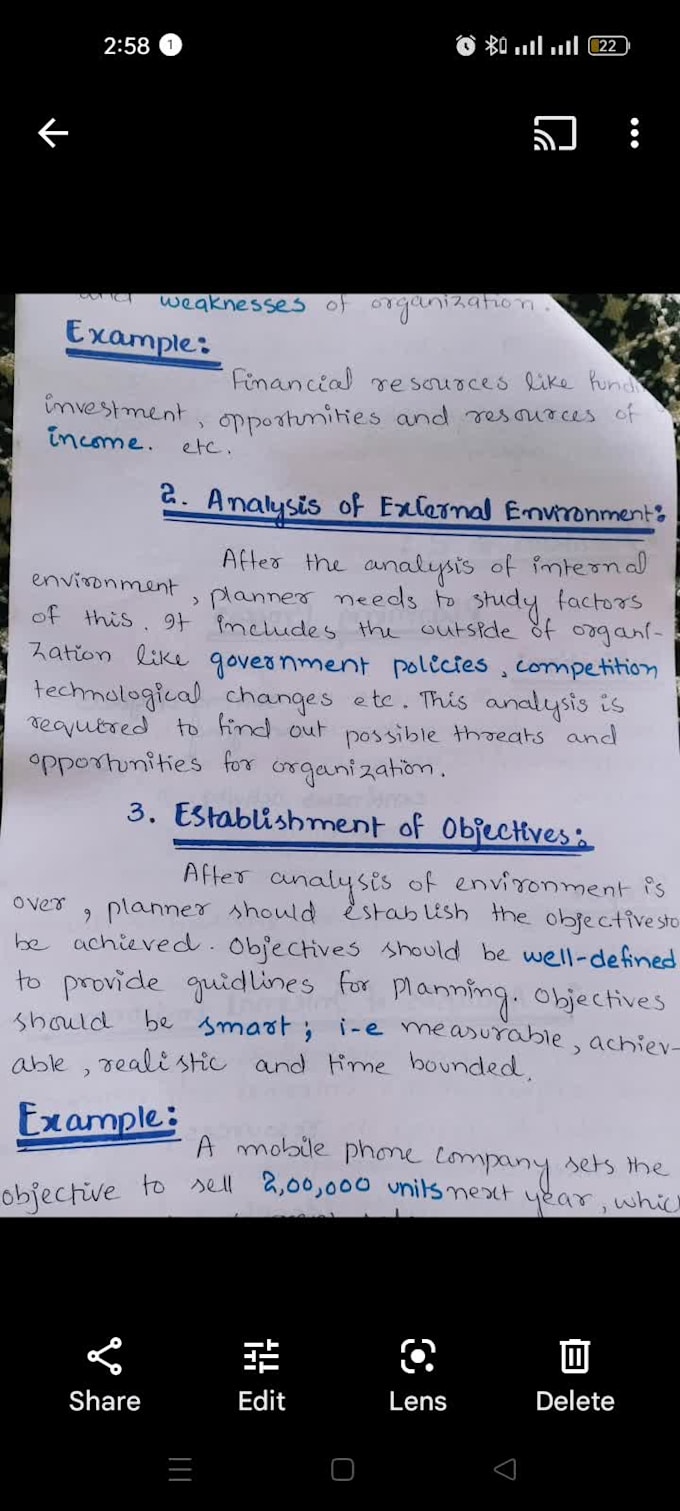 2:58 1
22
weaknesses of organization.
Example:
Financial resources like
investment, opportunities and resources of
income. etc.
2. Analysis of External Environment:
After the analysis of internal
environment, planner needs to study factors
of this. It includes the outside of organi-
zation like government policies, competition
technological changes etc. This analysis is
required to find out possible threats and
opportunities for organization.
3. Establishment of Objectives:
After analysis of environment is
over, planner should establish the objectives to
be achieved. Objectives should be well-defined
to provide guidlines for planning. Objectives
should be smart; i-e measurable, achiev-
able, realistic and time bounded.
Example:
A mobile phone company sets the
objective to sell 2,00,000 units next year, which
Share Edit Lens Delete